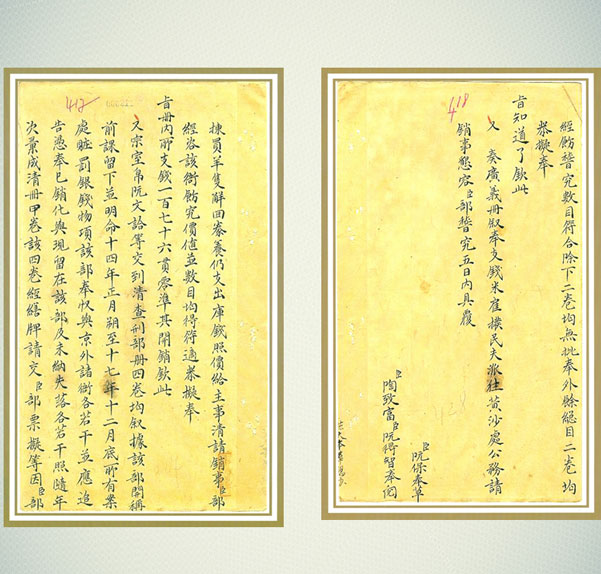 417
揀員羊隻解回豢養仍支出庫錢照價給主事清請銷事臣部
經咨該衙飭究價值並數目均得符適恭擬奉
旨冊內所支錢一百七十六貫零準其開銷欽此
又宗室帛阮文詥等交到清查刑部冊四卷均叙據該部開稱
前課留下並明命十四年正月朔至十七年十二月底所有案
處贓罰銀錢物項該部奉收與京外諸衙各若干並應追
告憑奉已銷化與現留在該部及未納失落各若干照隨年
次彙成清冊甲卷該四卷經繕牌請交臣部票擬等因臣部
418
經飭暫究數目符合除下二卷均無批奉外餘總目二卷均
恭擬奉
旨知道了欽此
又奏廣義冊叙奉支錢米雇撲民夫派往黃沙處公務請
銷事懇容臣部暫究五日內具覆
臣阮保奉草
臣陶致富臣阮得智奉閱